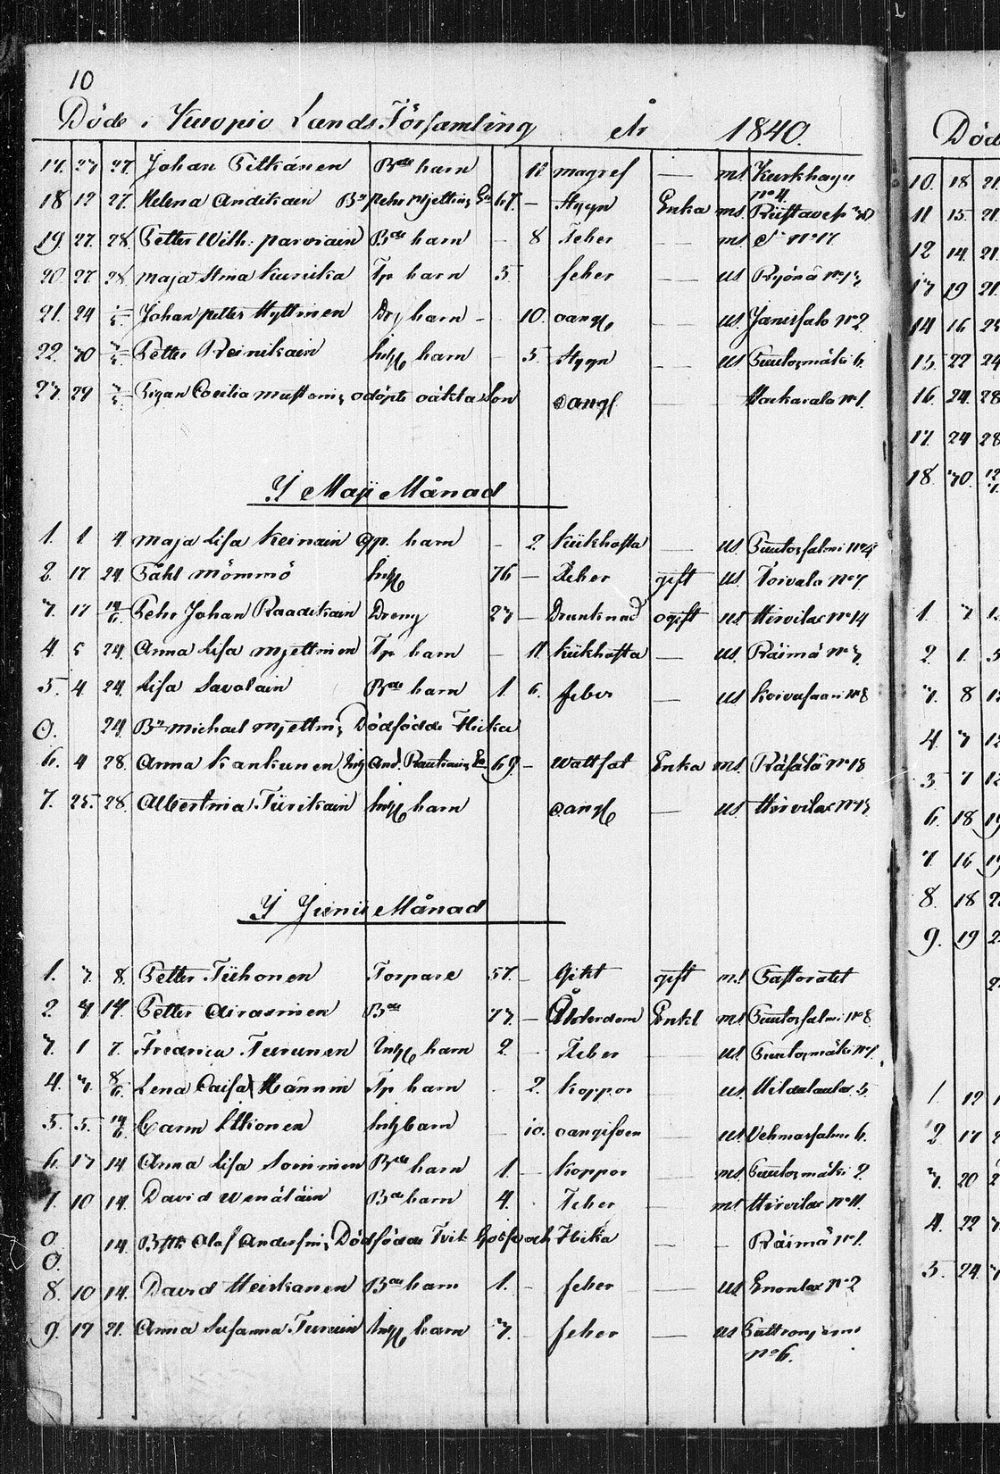 10
Döde i Kuopio Lands Församling År 1840.
17. 27 27. Johan Pitkänen Bde barn 12 magref — ms. Kurkhayu n°4.
18 12 27. Helena Andikain Bn Pehr Mjettins En 67. — Stygn Enka ms. Riistaves n°30
19. 27. 28. Petter Wilh. parviain Bde barn - 8 Feber — ms. n°17
20. 27 28. Maja Stina Kuriika Tp barn 5 feber — us Ryönä n°
21. 24 Johan petter Hyttinen Drg barn - 10. oange — us. Jänissalo n°2
22. 30 Petter Reinikain Inhs barn - 5. Stygn us Puutosmäki 6.
23. 29 Pigan Cecilia Mustonins odöpte oäkta Son oange — Hackarala n°1.
I Maji Månad
1. 1 4. Maja Lisa Keinain Tp. barn - 2. Kiikhosta — us. Puutosalmi n°
2. 17 24. Påhl Mömmö Inhs 76 — Feber gift us. Toivala n°7
3. 17 Pehr Johan Raadikain Dreng 23 — Drunknad ogift us Hirvilax n°14
4. 5 24. Anna Lisa Mjettinen Tp barn - 11. kiikhosta — us. Räimä n°3
5. 4 24. Lisa Savolain Bde barn 1 6. feber — us Koivusaari n°8
0. 24 Bn Michael Mjettins Dödfödde Flicka
6. 4 28. Anna Kankunen Inhs And. Rautiains En 69. — Wattsot Enka ms. Räsälä n°18
7. 25. 28. Albertina Tiirikain Inhs barn oange — us. Hirvilax n°13
I Junii Månad
1. 7 8. Petter Tiihonen Torpare 57. — Gikt gift ms. Pastoratet
2. 4 14. Petter Airasinen Bde 77. — Ålderdom Enkl ms. Puutosalmi n°8.
3. 1 7. Fredrica Turunen Inhs barn 2 - Feber us Puutosmäki n°1.
4. 3. Lena Caisa Hännin Tp barn - 2. Koppor — us Hildulanlax 5
5. 5. Carin Ikionen Inhs barn 10. oangifven — us Vehmasalmi 6.
6. 13 14 Anna Lisa Soininen Bde barn 1. — Koppor — ms. Puutosmäki 2.
7. 10 14. David Wenäläin Bde barn 4. - Feber — ms Hirvilax n°11.
0. 14. Btr Olaf Andersins Dödfödde Tvil. Gosse och Flicka — Räimä n°1.
0.
8. 10 14. David Heiskanen Bde barn 1. — feber — us Enonlax n°2
9. 17 21. Anna Susanna Turuin Inhs barn 3. — feber — us Puttronjemi n°6.
Död
10. 18 21
11 15 21
12 14 21
13 19 21
14 16 25
15. 22 24
16. 24. 28
17. 24 28
18. 30.
1. 7
2. 1. 5
3. 8 12
4. 3 12
5 7 12
6. 18 19
7 16 19
8. 18 2
9. 19 2
1. 12 1
2 17 2
3. 20 2
4. 22
5. 24.